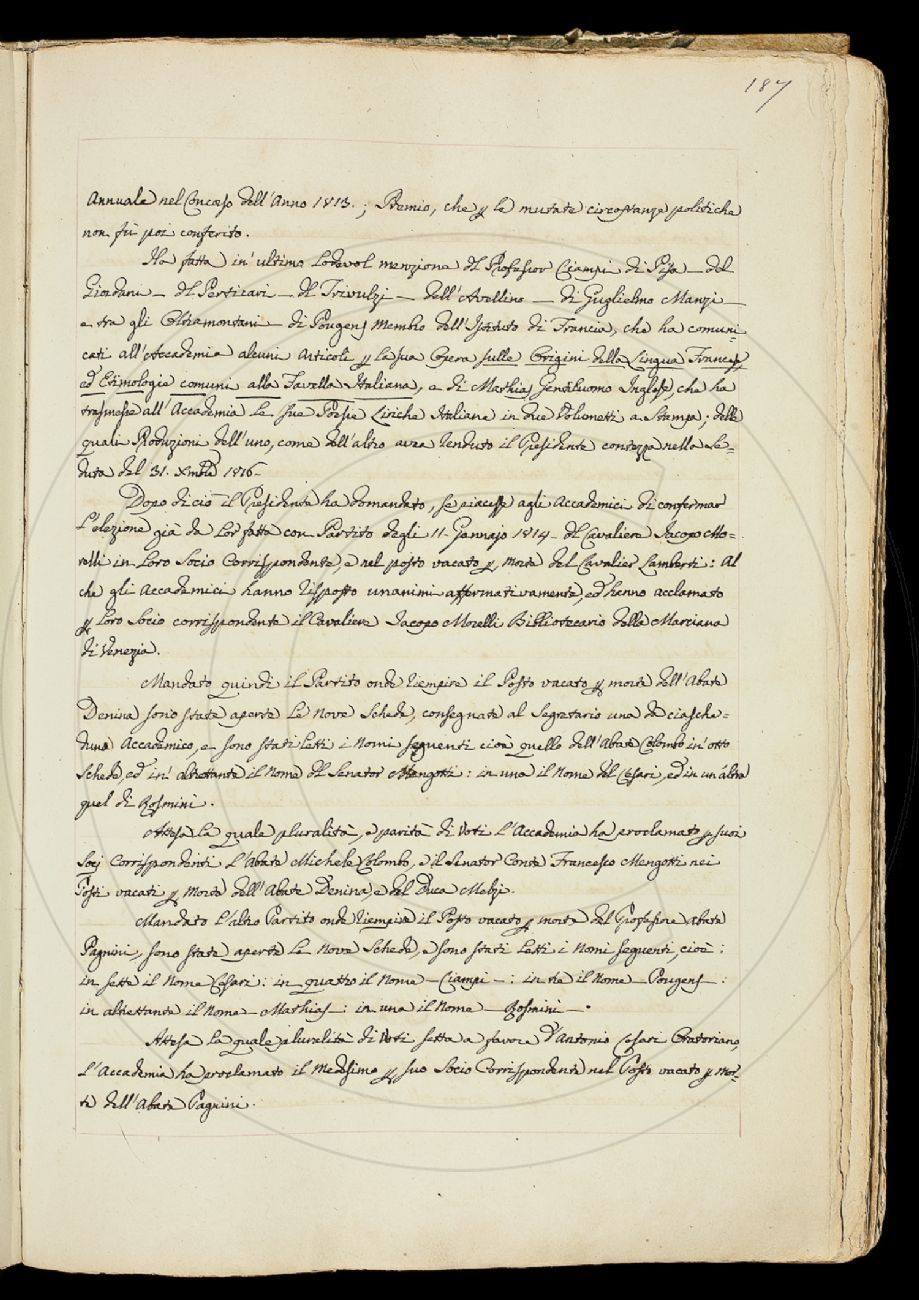 187
Annuale nel Concorso dell'Anno 1813.; Premio, che p le mutate circostanze politiche
non fù poi conferito.
Ha fatta in'ultimo lodevol menzione del Professor Ciampi di Pisa — del
Giordani — del Perticari — del Trivulzj — dell'Avellino — di Guglielmo Manzi —
e tra gli Oltramontani — di Pougens Membro dell'Istituto di Francia, che ha comuni-
cati all'Accademia alcuni articoli p la sua Opera sulle Origini della Lingua Francese,
ed Etimologie comuni alla Favella Italiana, e di Mathias Gentiluomo Inglese, che ha
trasmesse all'Accademia le sue Poesie Liriche Italiane in due Volumetti a Stampa; delle
quali Produzioni dell'uno, come dell'altro avea renduto il Presidente contezza nella Se-
duta del 31. Xmbre 1816.
Dopo di ciò il Presidente ha domandato, se piacesse agli Accademici di confermar
l'elezione già da lor fatta con Partito degli 11. Gennajo 1814. del Cavaliere Jacopo Mo-
relli in loro Socio Corrispondente, e nel posto vacato p morte del Cavalier Lamberti: Al
che gli Accademici hanno risposto unanimi affermativamente, ed hanno acclamato
p loro Socio corrispondente il Cavaliere Jacopo Morelli Bibliotecario della Marciana
di Venezia.
Mandato quindi il Partito onde riempire il Posto vacato p morte dell'Abate
Denina sono state aperte le nove Schede, consegnate al Segretario una da ciasche-
duno Accademico, e sono stati letti i Nomi seguenti cioè quello dell'Abate Colombo in'otto
schede, ed in' altrettante il nome del Senator Mengotti: in una il nome del Cesari, ed in un'altra
quel di Rosmini.
Attesa la quale pluralità, e parità di Voti l'Accademia ha proclamato p suoi
Socj Corrispondenti l'Abate Michele Colombo, e il Senator Conte Francesco Mengotti nei
Posti vacati p morte dell'Abate Denina, e del Duca Melzj.
Mandato l'altro Partito onde riempire il Posto vacato p morte del Professore Abate
Pagnini, sono state aperte le nove Schede, e sono stati letti i Nomi seguenti, cioè:
in sette il nome Cesari: in quattro il nome — Ciampi —: in tre il nome — Pougens —:
in altrettante il nome — Mathias —: in una il nome — Rosmini —.
Attesa la quale pluralità di Voti sette a favore d'Antonio Cesari Oratoriano,
l'Accademia ha proclamato il Medesimo p suo Socio Corrispondente nel Posto vacato p mor-
te dell'Abate Pagnini.